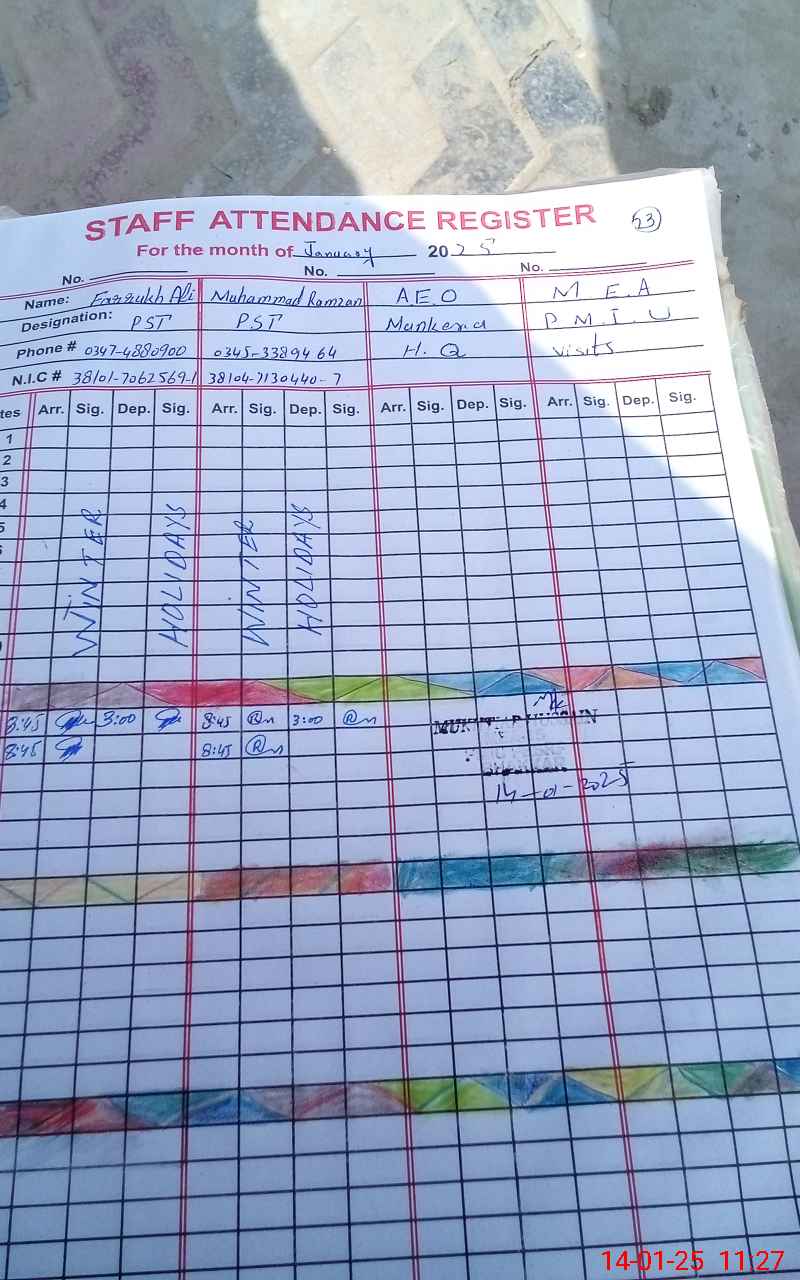 STAFF ATTENDANCE REGISTER 23
For the month of January 2025
No. No. No.
Name: Farrukh Ali Muhammad Ramzan A.E.O M.E.A
Designation: PST PST Mankera P.M.I.U
Phone # 0347-4880900 0345-3389464 H.Q visits
N.I.C # 38101-7062569-1 38104-7130440-7
tes Arr. Sig. Dep. Sig. Arr. Sig. Dep. Sig. Arr. Sig. Dep. Sig. Arr. Sig. Dep. Sig.
1
2
3
4
5
6
WINTER HOLIDAYS WINTER HOLIDAYS
8:45 3:00 8:45 3:00
8:45 8:45
14-01-2025
14-01-25 11:27